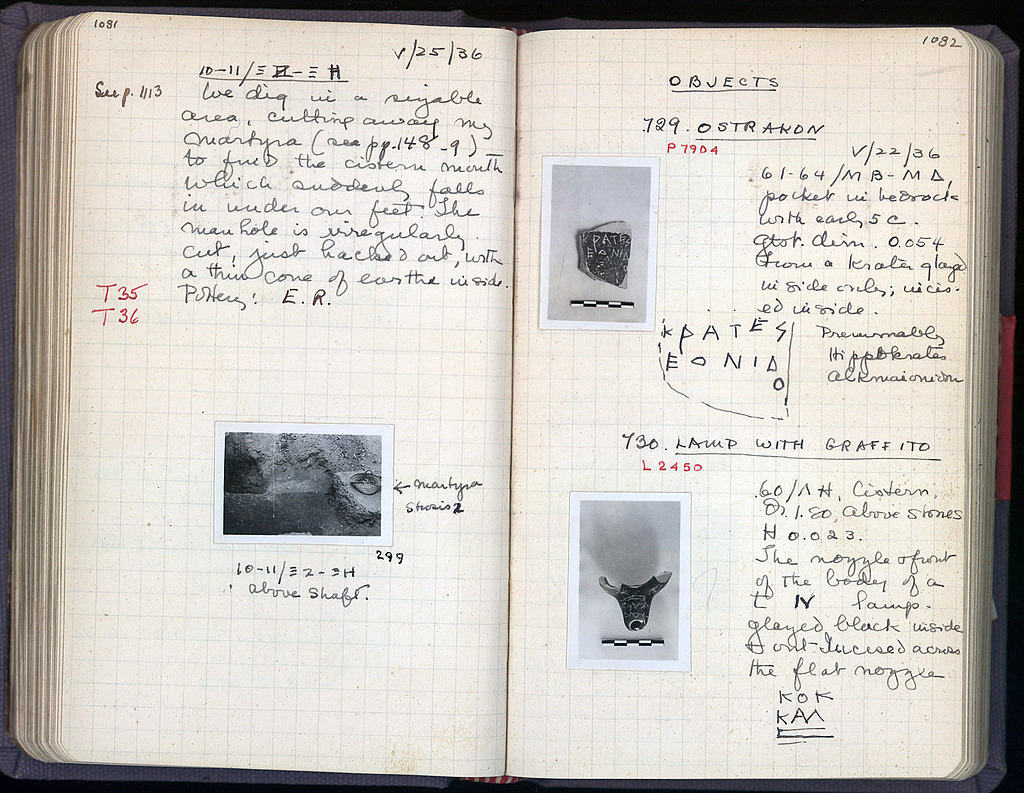 1081
V/25/36
10-11/Ξ Ζ - Ξ Η
See p. 1113
We dig in a sizable
area, cutting away my
martyra (see pp. 148-9)
to find the cistern mouth
which suddenly falls
in under our feet. The
manhole is irregularly
cut, just hacked out, with
a thin cone of earth inside.
T 35
Pottery: E.R.
T 36
← martyra
Strosis 2
299
10-11/Ξ Ζ - Ξ Η
above shaft.
1082
OBJECTS
729. OSTRAKON
P 7904
V/22/36
61-64/ΜΒ-ΜΔ,
pocket in bedrock
with early 5 c.
gtst. dim. 0.054
From a krater glazed
inside only; incis-
ed inside.
ΚΡΑΤΕS
ΕΟΝΙΔ
Ο
Presumably
Hippokrates
Alkmaionidon
730. LAMP WITH GRAFFITO
L 2450
60/ΛΗ, Cistern,
1.80, above stones
H 0.023.
The nozzle & front
of the body of a
L IV lamp.
glazed black inside
& out. Incised across
the flat nozzle
ΚΟΚ
ΚΑΛ